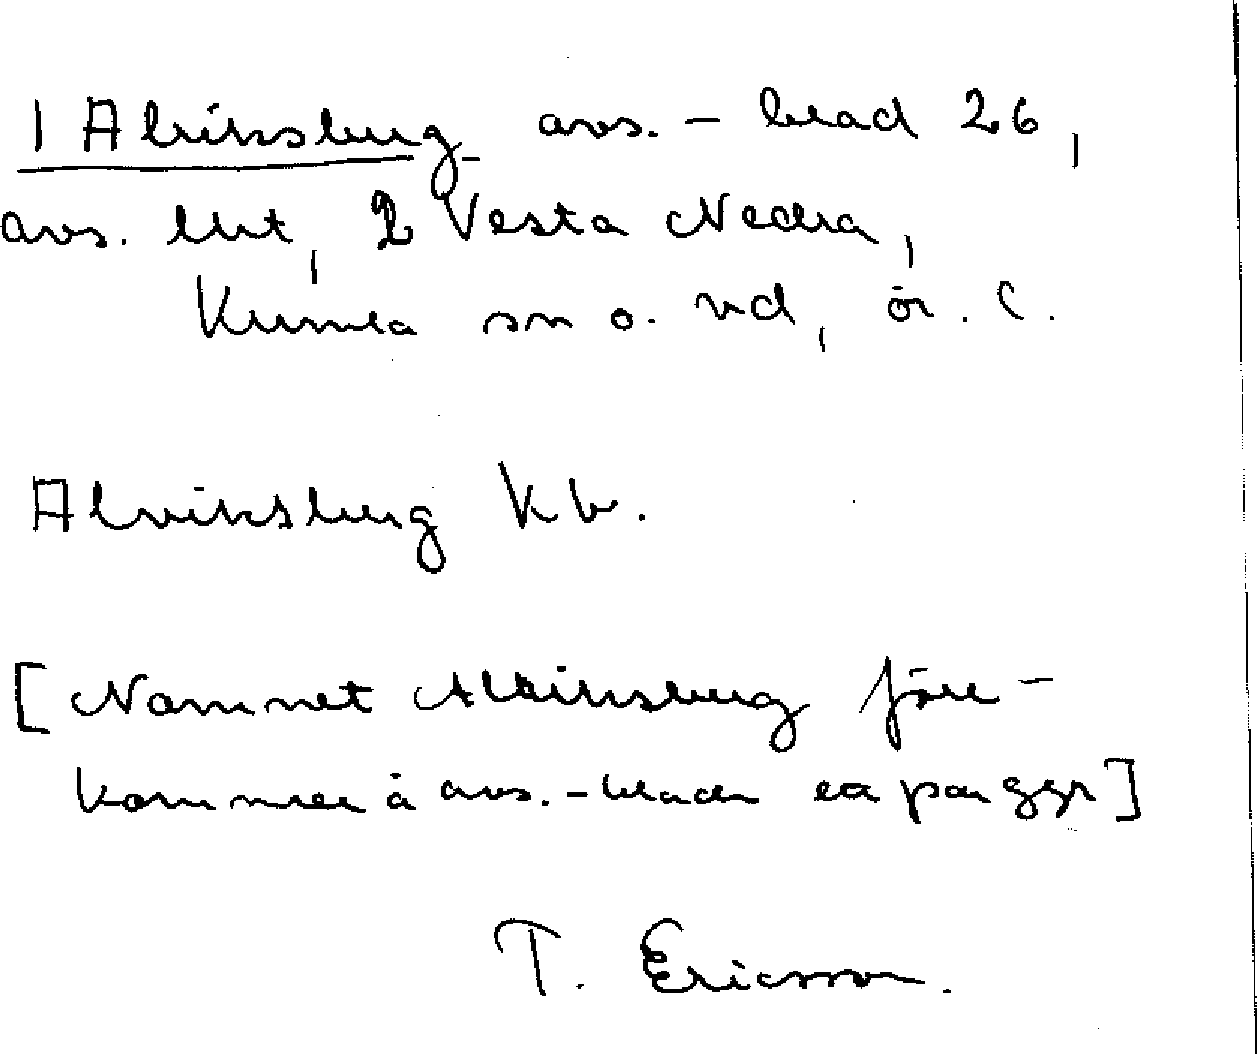 1 Alvinsberg avs. – blad 26,
avs. lht, 2 Vesta Nedra,
Kumla sn o. hd, ör. l.
Alvinsberg kb.
[Namnet Alvinsberg före-
kommer å avs.-bladen ett par ggr]
T. Ericsson.